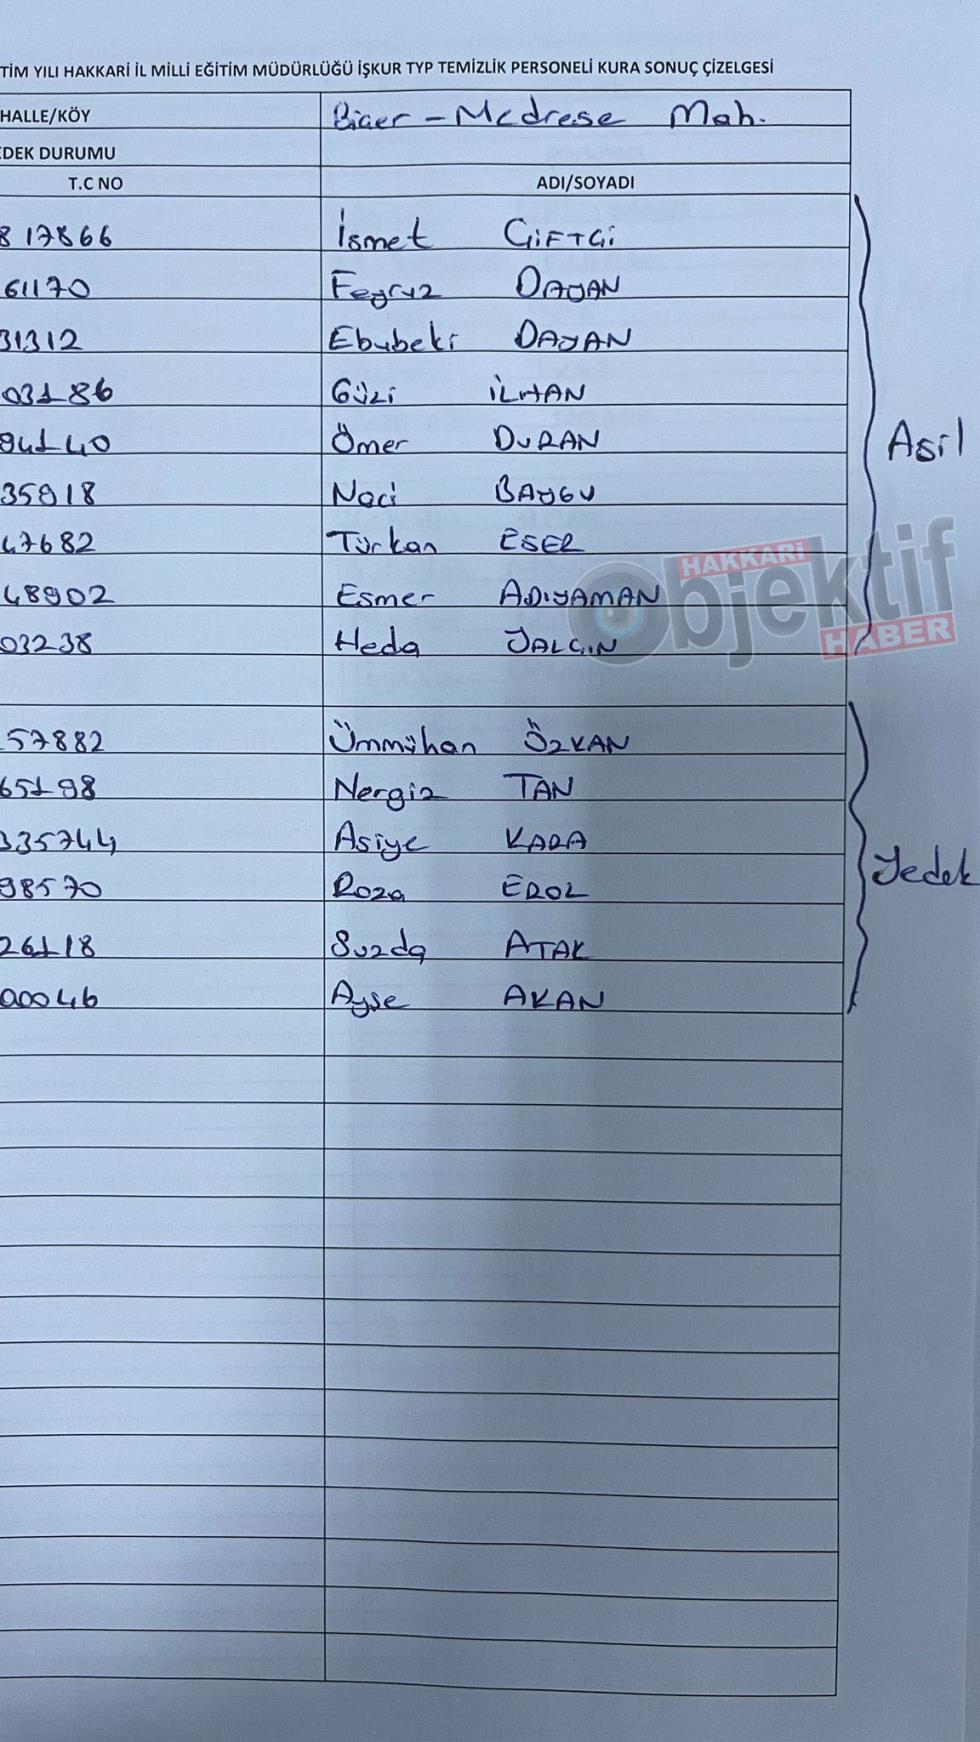 TİM YILI HAKKARİ İL MİLLİ EĞİTİM MÜDÜRLÜĞÜ İŞKUR TYP TEMİZLİK PERSONELİ KURA SONUÇ ÇİZELGESİ
HALLE/KÖY Biçer - Medrese Mah.
EDEK DURUMU
T.C NO ADI/SOYADI
817866 İsmet ÇİFTÇİ
61170 Feyruz DAYAN
31312 Ebubeki DAYAN
03186 Güzi İLHAN
94140 Ömer DURAN
35918 Naci BAYGU
47682 Türkan ESER
48902 Esmer ADIYAMAN
03238 Heda YALÇIN
Asil
HAKKARİ
Objektif
HABER
57882 Ümmühan ÖZKAN
65198 Nergiz TAN
335744 Asiye KARA
98570 Roza EROL
26118 Suzda ATAK
00046 Ayşe AKAN
Yedek